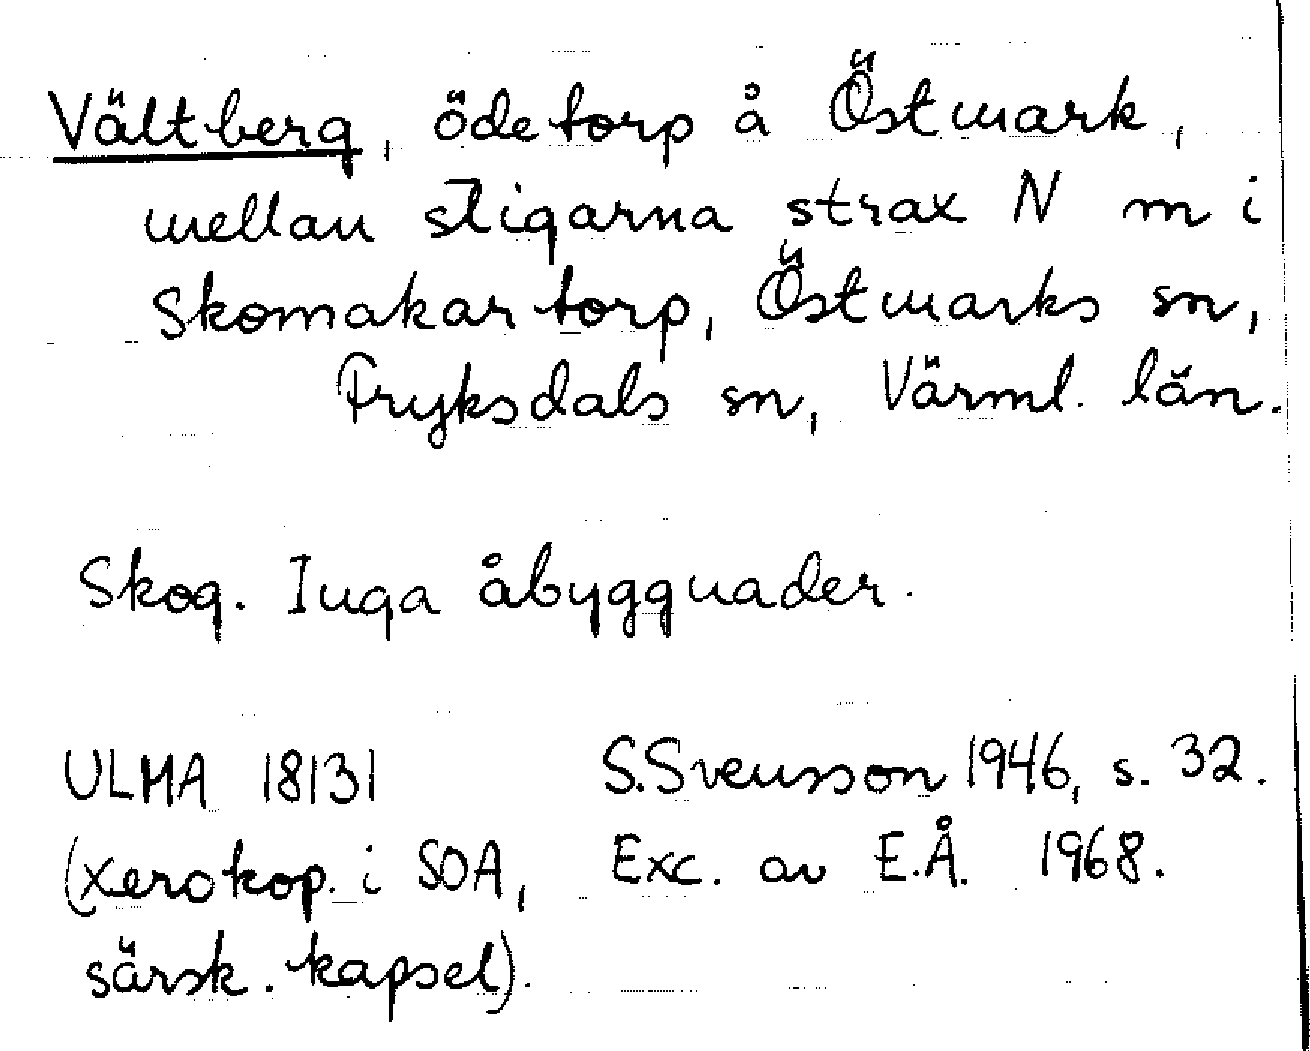 Vältberg, ödetorp å Östmark,
mellan stigarna strax N m i
Skomakartorp, Östmarks sn,
Fryksdals sn, Värml. län.
Skog. Inga åbyggnader.
ULMA 18131 S.Svensson 1946, s. 32.
(xerokop. i SOA, Exc. av E.Å. 1968.
särsk. kapsel).